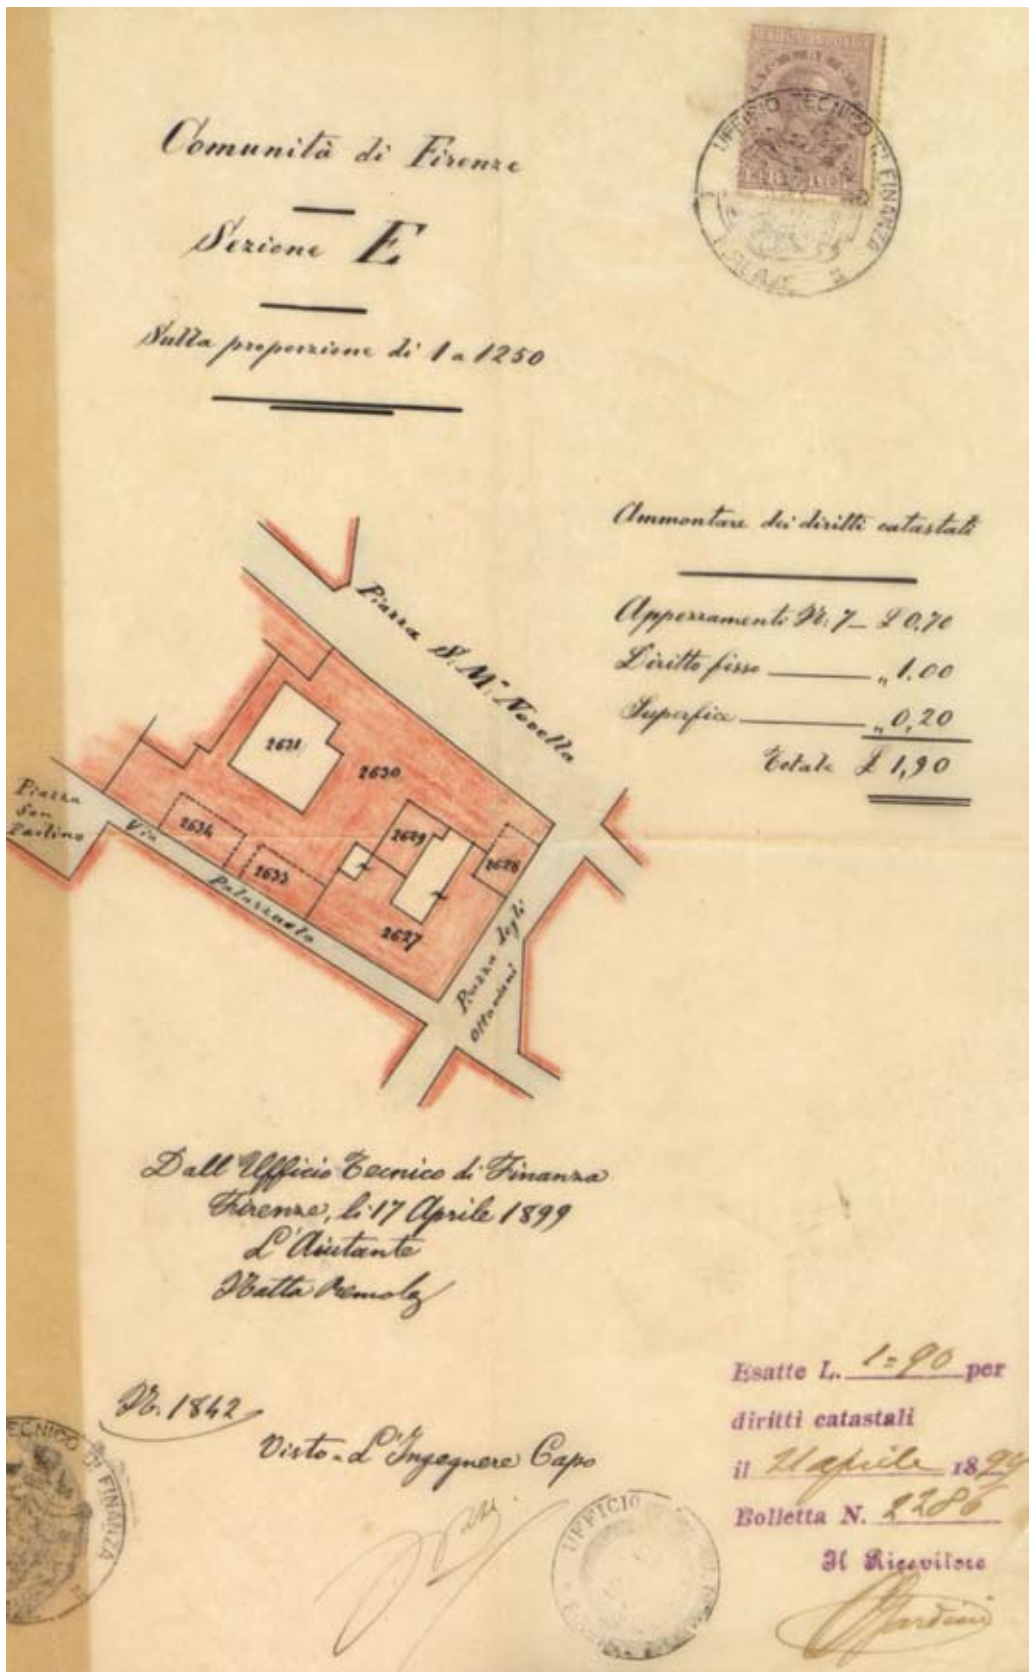 Comunità di Firenze
Sezione E
Sulla proporzione di 1 a 1250
UFFICIO TECNICO DI FINANZA
Ammontare dei diritti catastali
Appezzamenti N. 7 — £ 0,70
Diritto fisso — „ 1.00
Superfice — „ 0,20
Totale £ 1,90
Piazza S. Mª Novella
2631
2630
2634
2633
2629
2628
2627
Piazza
San
Paolino
Via Palazzuolo
Piazza degli
Ottaviani
Dall'Ufficio Tecnico di Finanza
Firenze, li 17 Aprile 1899
L'Aiutante
Matta
N. 1842
Visto - L'Ingegnere Capo
TECNICO DI FINANZA
UFFICIO
Esatte L. 1=90 per
diritti catastali
il 21 aprile 1899
Bolletta N. 2286
Il Ricevitore